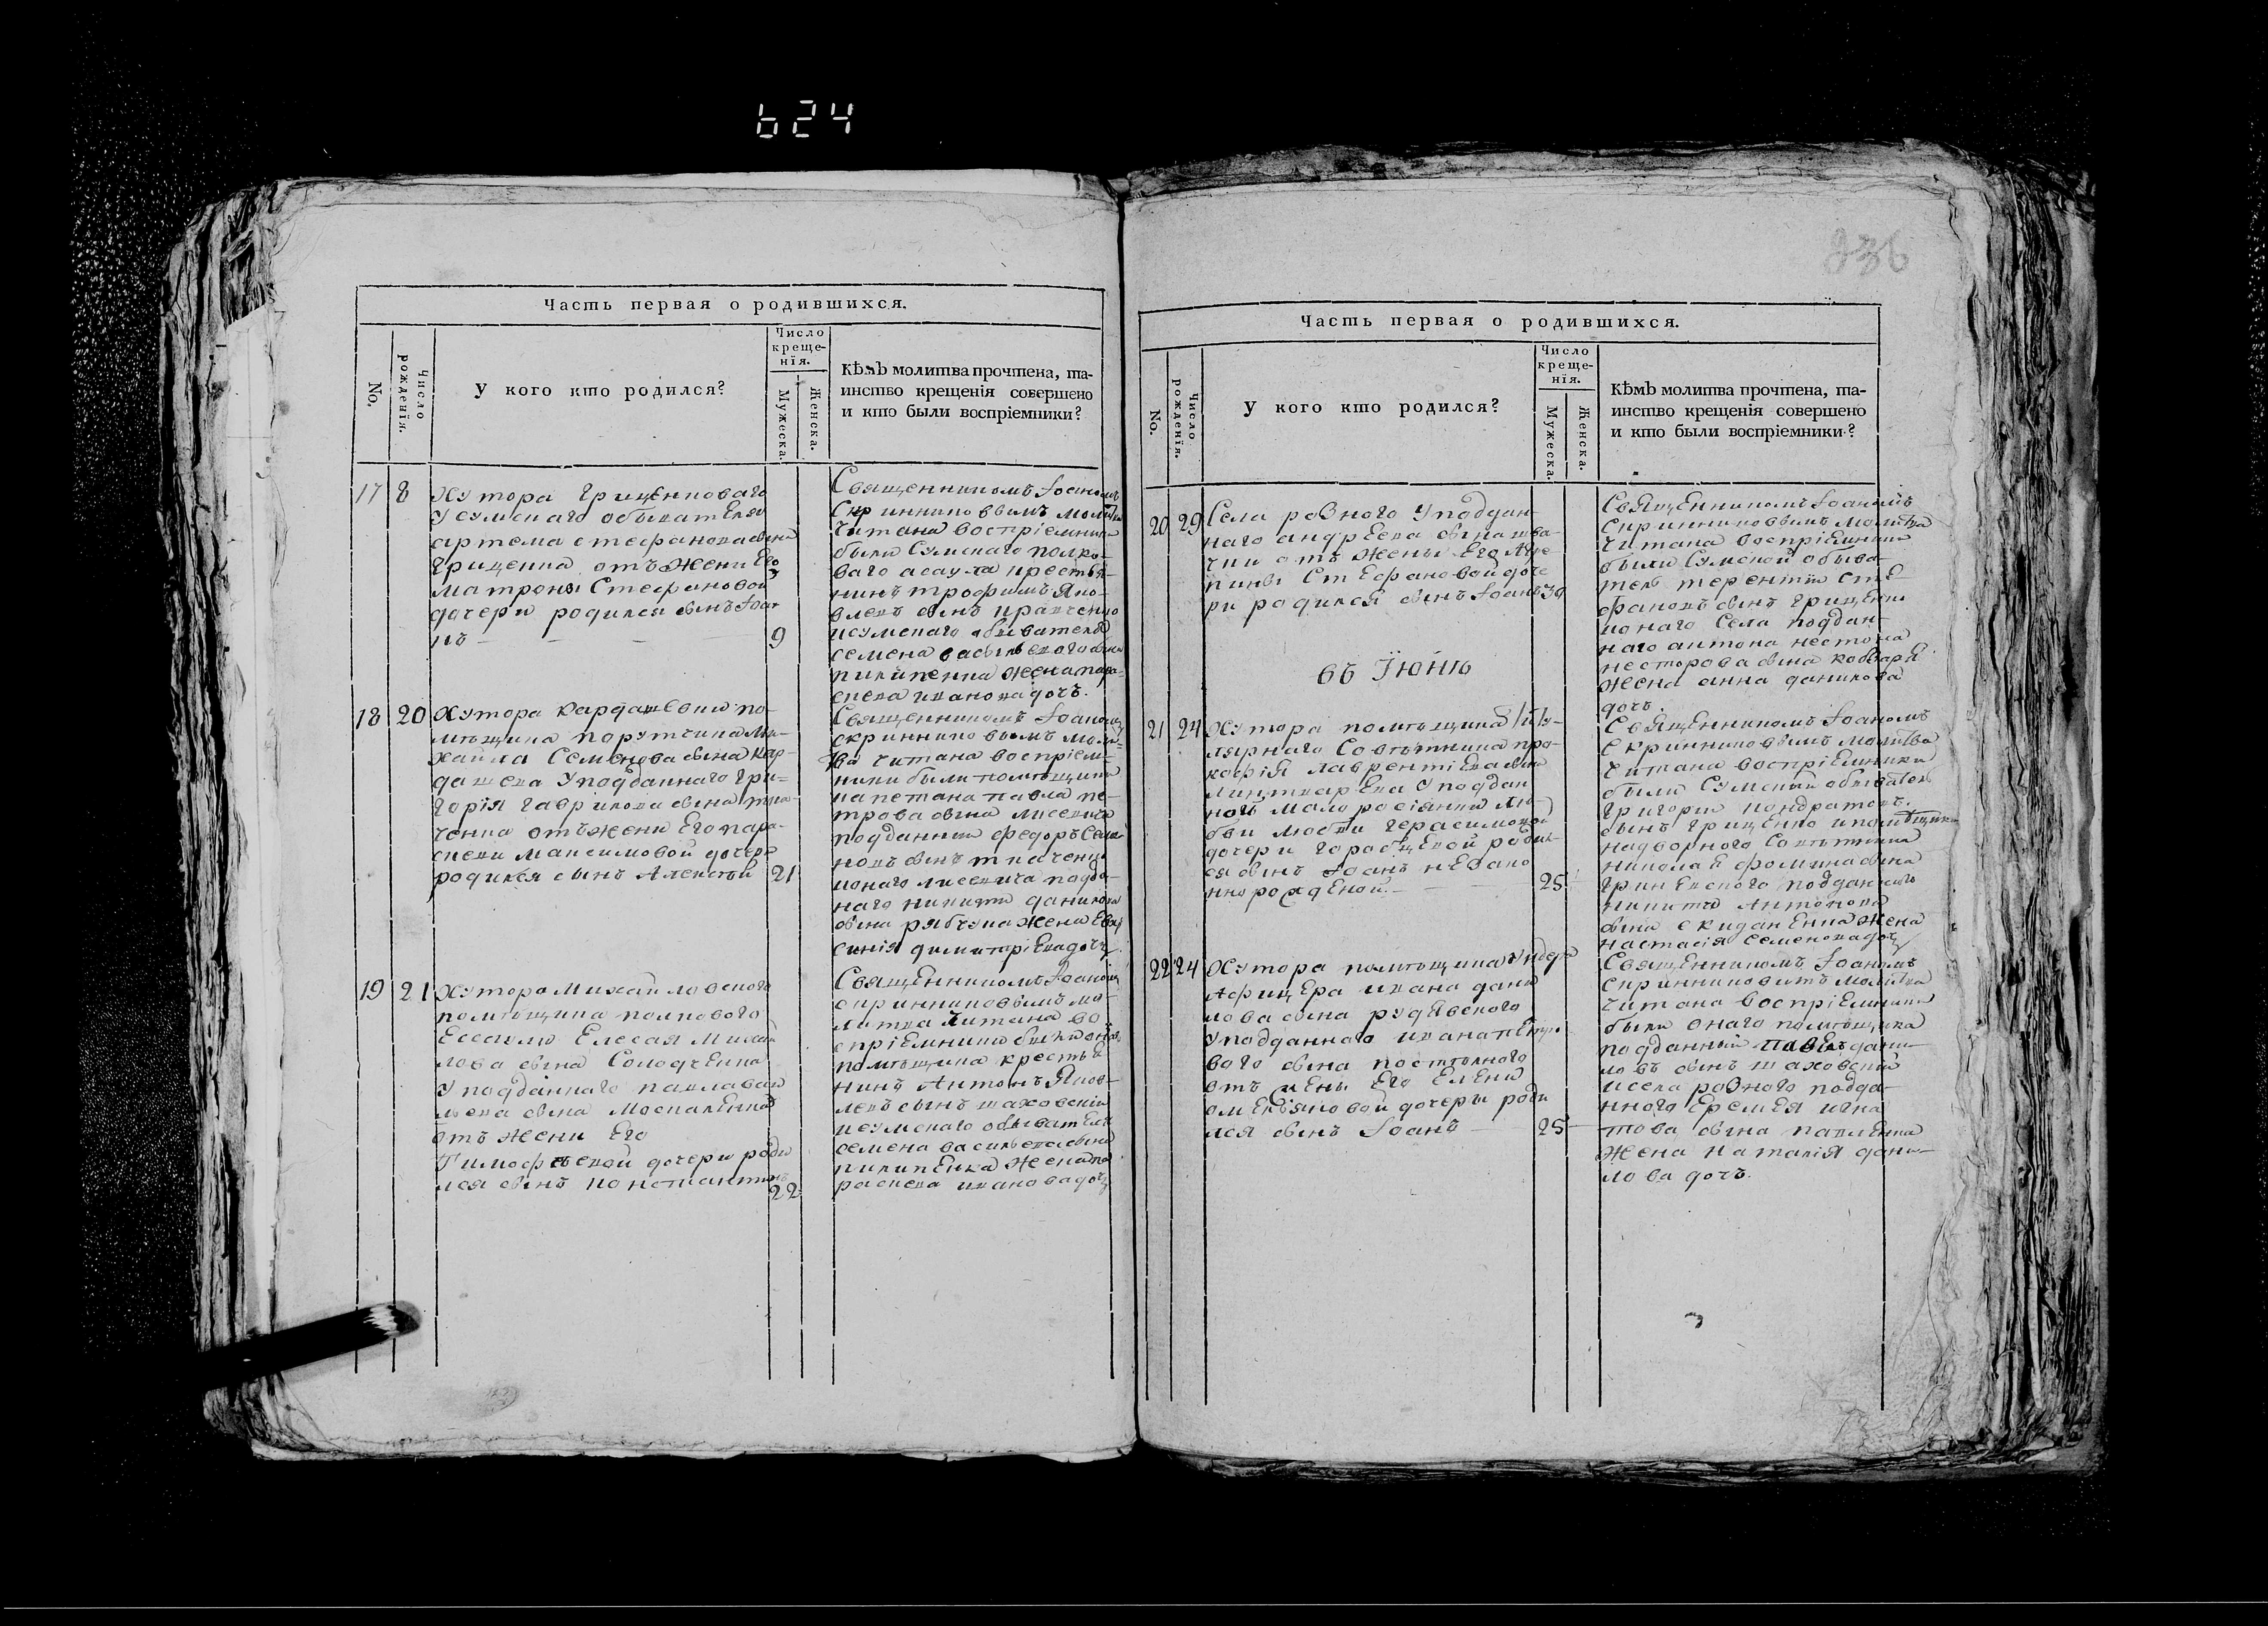 624
236
Часть первая о родившихся.
No.
Число рожденїя.
У кого кто родился?
Число
креще-
нїя.
Мужеска.
Женска.
Кѣмъ молитва прочтена, та-
инство крещенія совершено
и кто были воспріемники?
17 8
Хутора Грищенковаго
У сумскаго обывателя
артема стефанова сына
Грищенка отъ жени Его
матроны Стефановой
дочери родился сынъ Іоан
нъ - - - 9
Священникомъ Іоаномъ
Скринниковымъ молитва
читана воспріемники
были Сумскаго полко-
ваго асаула крестья-
нинъ трофимъ Яко-
влевъ сынъ кравченко
исумскаго обывателя
семена васильевого сына
пилипенка жена пара-
скева иванова дочъ.
18 20
Хутора Кардашевки по-
мѣщика порутчика Ми-
хайла Семенова сына Кар-
дашева Уподданнаго Гри-
горія Гаврилова сына тка-
ченка отъ жени Его пара-
скеви Максимовой дочери
родился сынъ Алексѣй 21
Священникомъ Іоаномъ
скринниковымъ моли-
тва читана воспріем-
ники были помѣщика
капетана павла пе-
трова сына лисевича
подданни федоръ Семе
новъ сынъ ткаченко
ионаго лисевича подда-
наго никити данилова
сына рябчуна жена Евдо
синія димитріева дочъ
19 21
Хутора Михайловского
помѣщика полкового
Есеаула Елесея Михай
лова сына Солодченка
Уподданнаго павла ва
лѣева сына Москаленка
отъ жени Его
Тимофѣевой дочери роди
лся сынъ Константинъ 22
Священникомъ Іоаномъ
скринниковымъ мо-
литва читана во
спріемники были онаго
помѣщика крестья
нинъ Антонъ Яков-
левъ сынъ шаховскій
исумскаго обывателя
семена васильева сына
пилипенка жена па
раскева иванова дочъ
Часть первая о родившихся.
No.
Число рожденїя.
У кого кто родился?
Число
креще-
нїя.
Мужеска.
Женска.
Кѣмъ молитва прочтена, та-
инство крещенія совершено
и кто были воспріемники?
20 29
Села ровного Уподдан-
наго андреева сына шва-
чки отъ жены Его Агре
пины Стефановой доче
ри родился сынъ Іоанъ 30
Священникомъ Іоаномъ
скринниковымъ молитва
читана воспріемники
были Сумской обыва-
тель терентій сте
фановъ сынъ Грищенко
ионаго Села поддан-
наго антона нестора
несторова сына кобзаря
жена анна данилова
дочъ.
въ Їюнѣ
21 24
Хутора помѣщика
лярнаго Совѣтника про-
кофія лаврентіева сына
Линтварева Уподдан
ной малоросіянки Лю-
бви герасимовой
дочери горобцевой родил-
ся сынъ Іоанъ незако
ннорожденой. - - 25
Священникомъ Іоаномъ
Скринниковымъ молитва
читана воспріемники
были Сумский обыватель
Григорій кондратовъ
сынъ Грищенко ипомѣщика
надворного Совѣтника
николая фомича сына
Гриневского подданнаго
никиты Антонова
сына скиданенка жена
настасія семенова дочъ
22 24
Хутора помѣщика Ундеръ
Афицера ивана дани
лова сына рудзевского
Уподданнаго ивана петро
вого сына постолного
отъ жены Его Елены
омельяновой дочеры роди
лся сынъ Іоанъ 25
Священникомъ Іоаномъ
скринниковитъ молитва
читана воспріемники
были онаго помѣщика
подданный павелъ дани-
ловъ сынъ шаховский
исела ровного подда-
нного Еремея игна
това сына павленка
жена наталія дани-
лова дочъ.